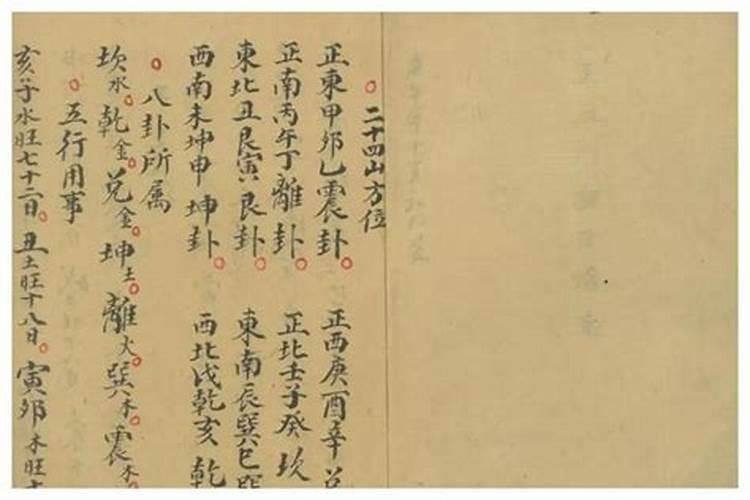 二十四山方位
正東甲卯乙震卦 正西庚酉辛兌
正南丙午丁離卦 正北壬子癸坎
東北丑艮寅艮卦 東南辰巽巳巽
西南未坤申坤卦 西北戌乾亥乾
八卦所属
坎水乾金兌金坤土離火巽木震木
五行用事
亥子水旺七十二日丑土旺十八日寅卯木旺十